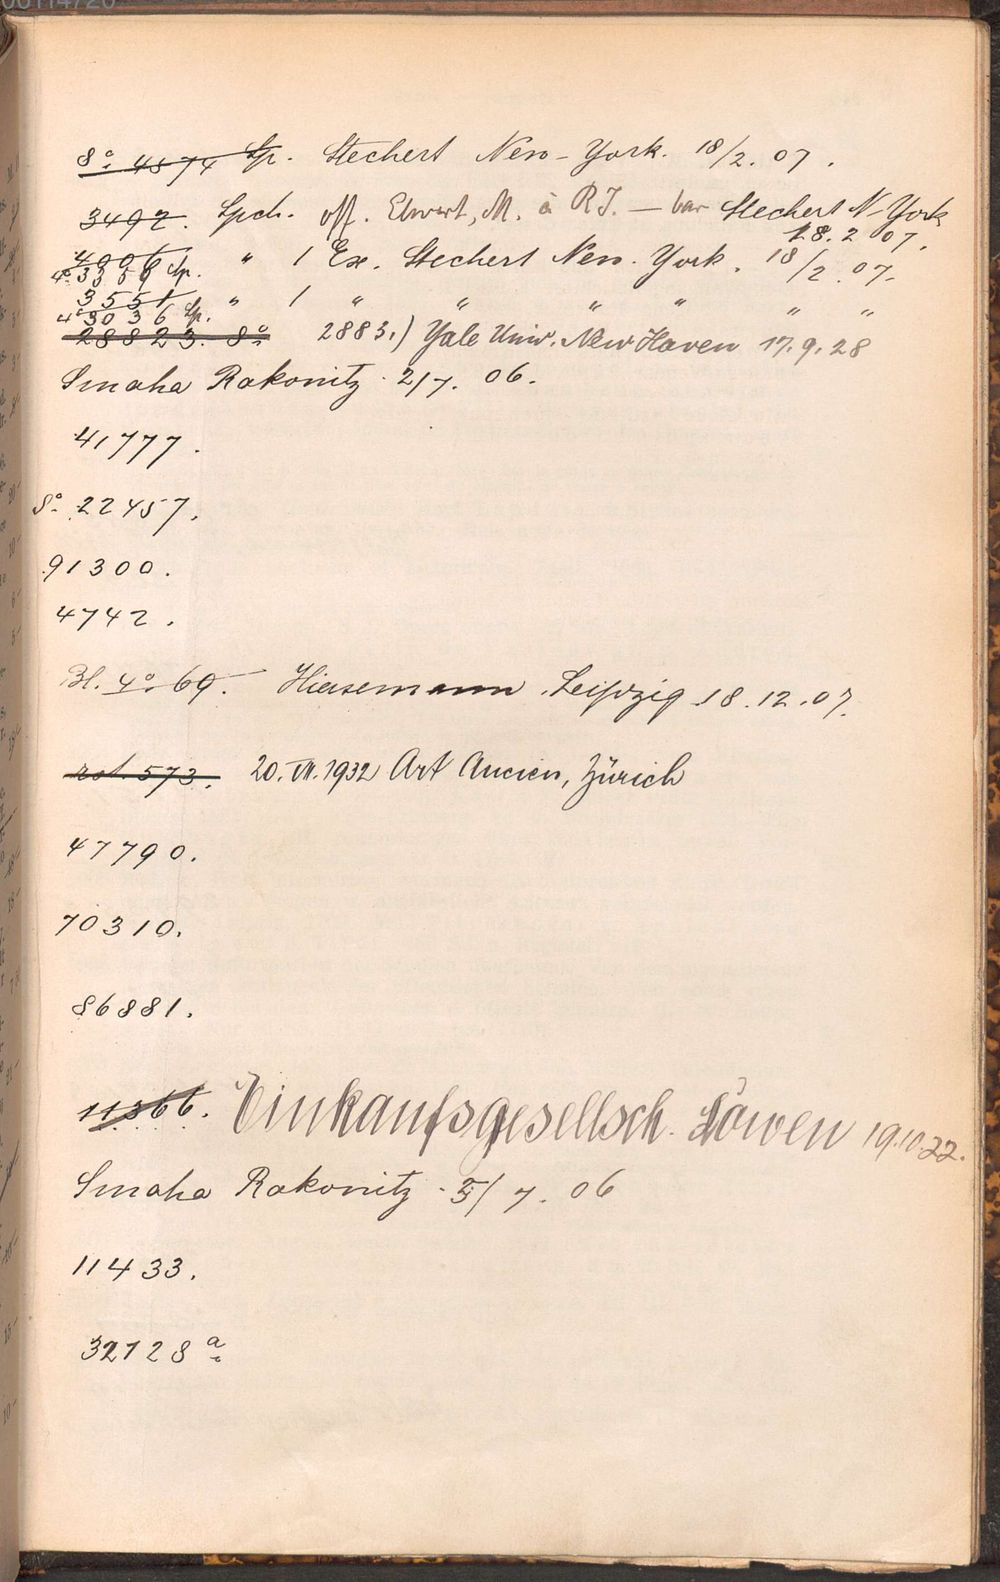 00114720
8° 4874 Sp. Stechert New-York. 18/2. 07.
3497. Spch. off. Ehwert, M. à R J. — bar Stechert N-York
18. 2 07.
4006 " 1 Ex. Stechert New-York. 18/2. 07.
4° 3359 Sp.
3551 " 1 " " " " " "
4° 3036 Sp.
28823. 8° 2883.) Yale Univ. New Haven 17. 9. 28
Smaha Rakonitz 2/7. 06.
41777.
8° 22457.
91300.
4742.
Bl. 4° 69. Hiersemann Leipzig 18. 12. 07.
rot. 573. 20. VII. 1932 Art Ancien, Zürich
47790.
70310.
86881.
11366. Einkaufsgesellsch. Löwen 19.10.22.
Smaha Rakonitz 5/7. 06
11433.
32128 a.